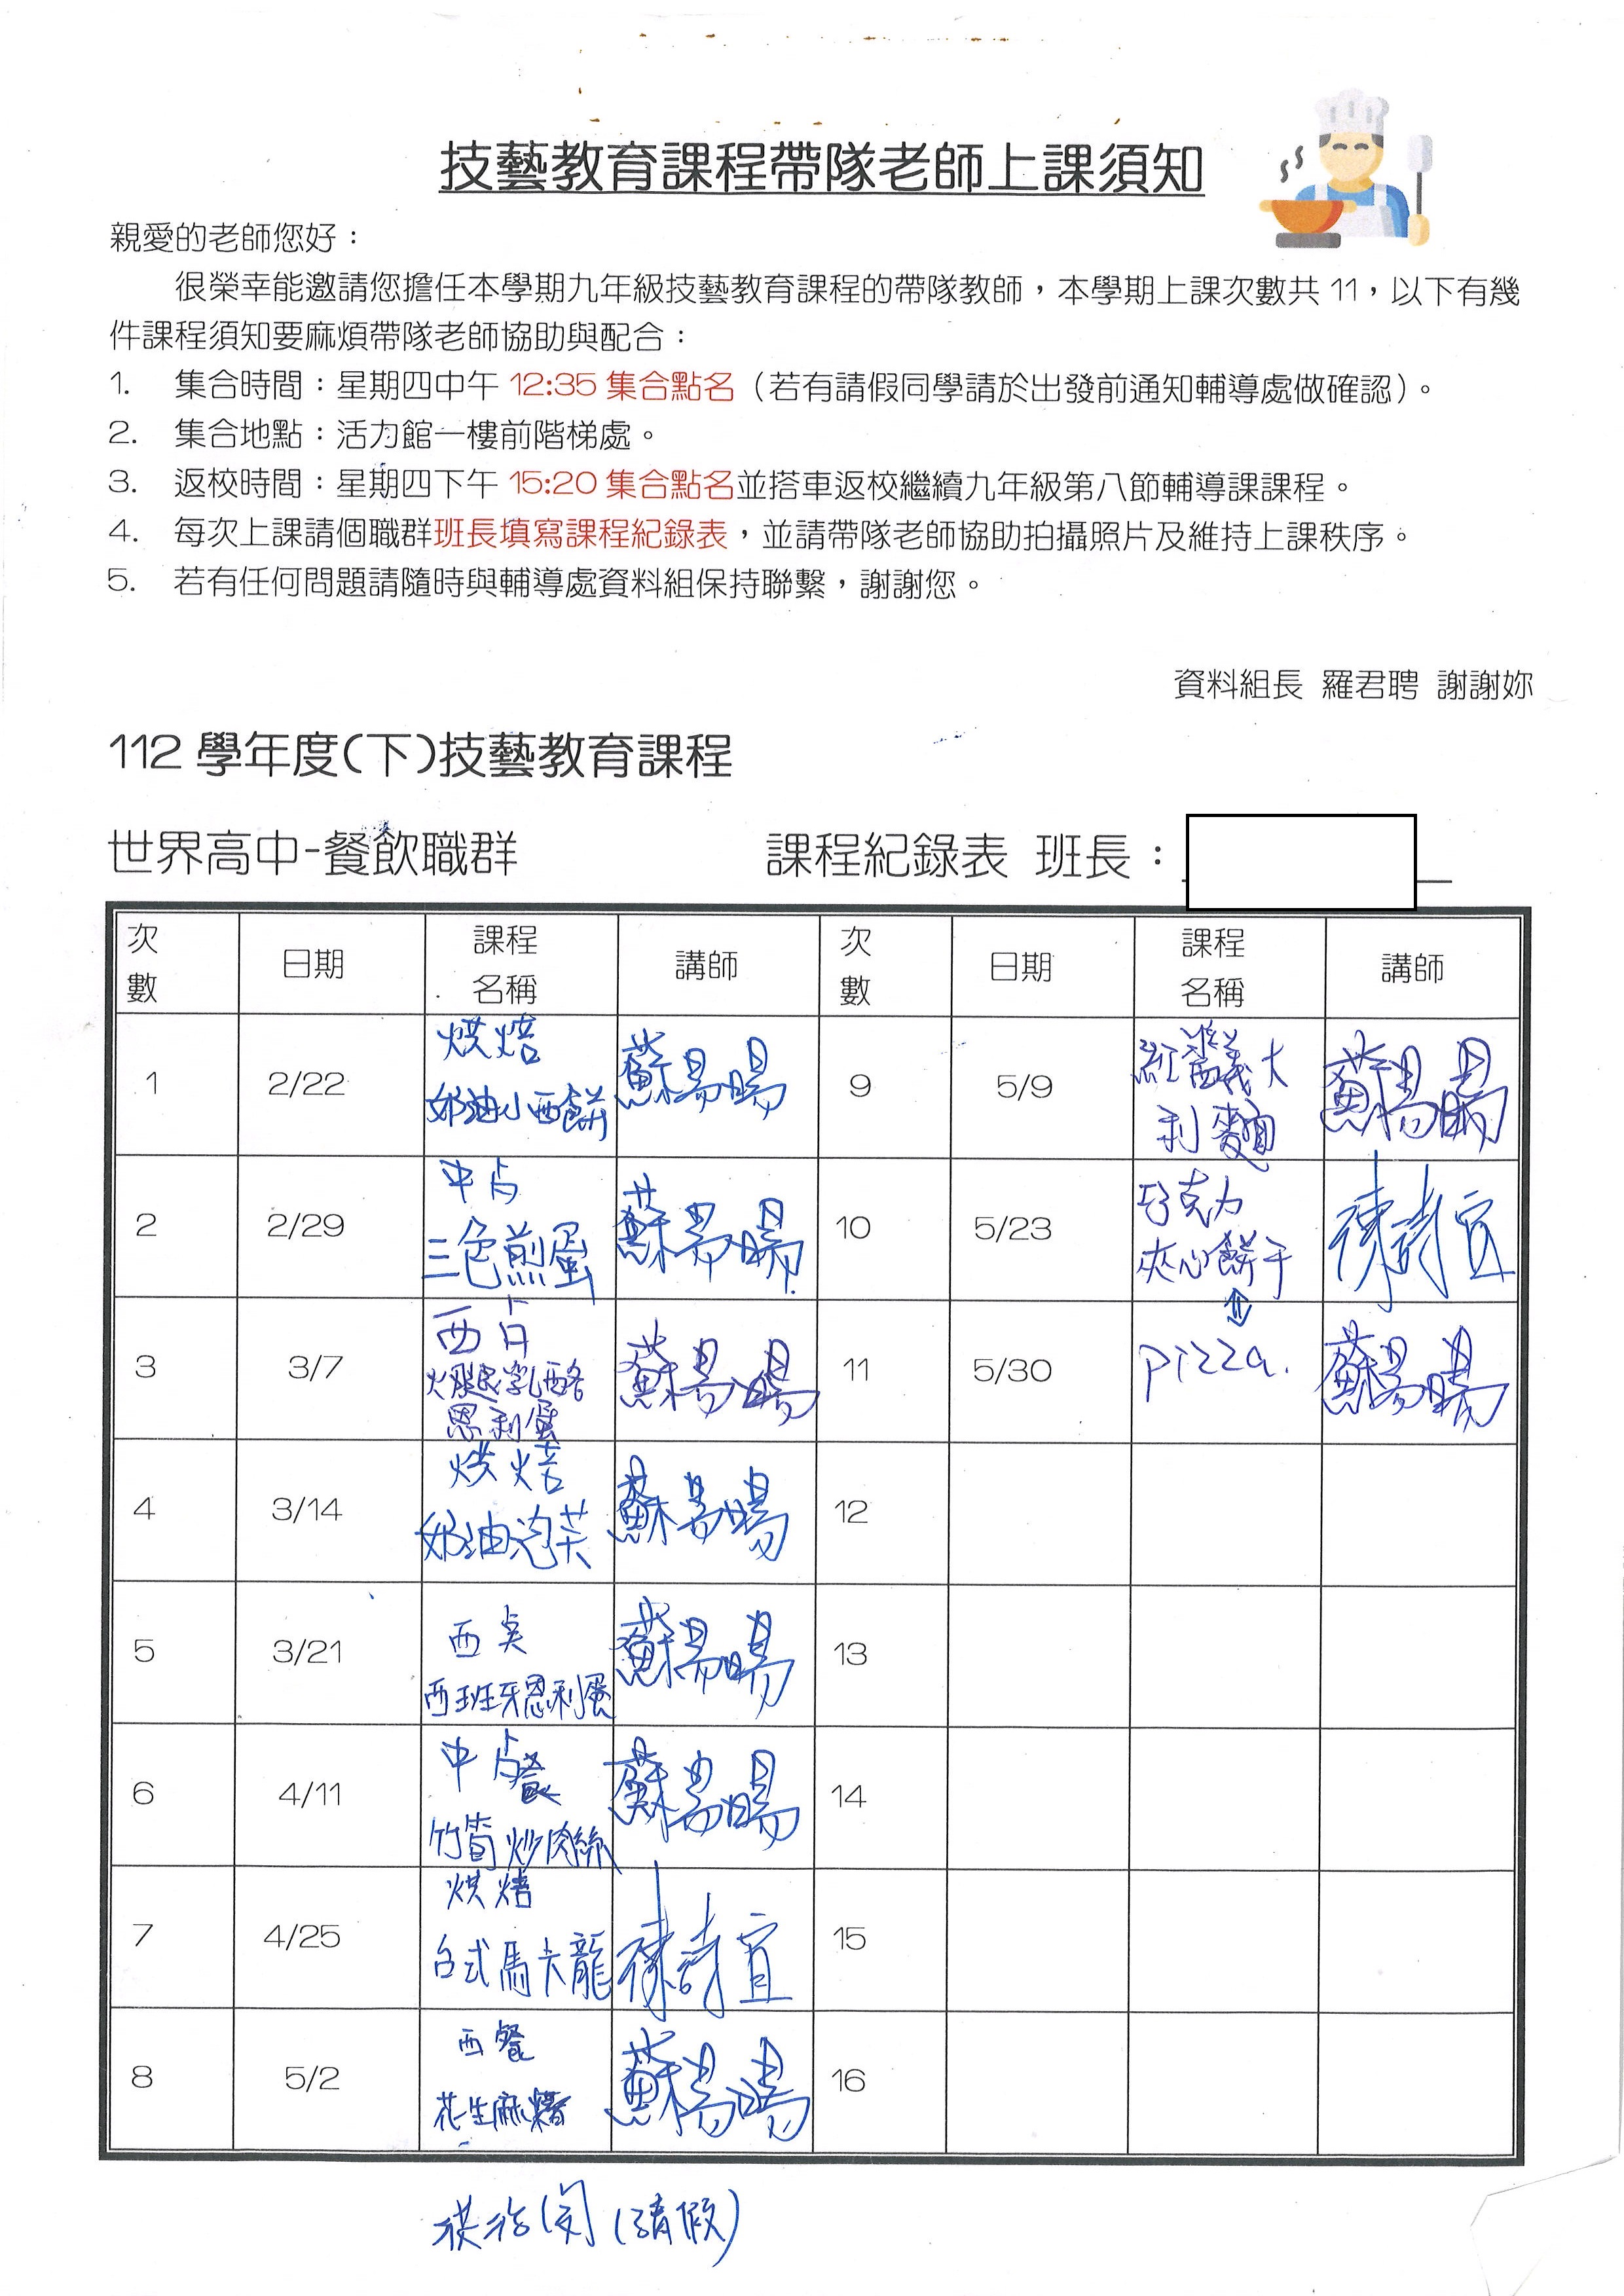 技藝教育課程帶隊老師上課須知
親愛的老師您好：
很榮幸能邀請您擔任本學期九年級技藝教育課程的帶隊教師，本學期上課次數共 11，以下有幾
件課程須知要麻煩帶隊老師協助與配合：
1. 集合時間：星期四中午 12:35 集合點名（若有請假同學請於出發前通知輔導處做確認）。
2. 集合地點：活力館一樓前階梯處。
3. 返校時間：星期四下午 15:20 集合點名並搭車返校繼續九年級第八節輔導課課程。
4. 每次上課請個職群班長填寫課程紀錄表，並請帶隊老師協助拍攝照片及維持上課秩序。
5. 若有任何問題請隨時與輔導處資料組保持聯繫，謝謝您。
資料組長 羅君聘 謝謝妳
112 學年度(下)技藝教育課程
世界高中-餐飲職群 課程紀錄表 班長：
次數 日期 課程名稱 講師 次數 日期 課程名稱 講師
1 2/22 烘焙 奶油小西餅 蘇昜暘 9 5/9 紅醬義大利麵 蘇昜暘
2 2/29 中占 三色煎蛋 蘇昜暘 10 5/23 巧克力夾心餅干 陳詩宜
3 3/7 西占 火腿乳酪恩利蛋 蘇昜暘 11 5/30 pizza. 蘇昜暘
4 3/14 烘焙 奶油泡芙 蘇昜暘 12
5 3/21 西 西班牙恩利蛋 蘇昜暘 13
6 4/11 中餐 竹筍炒肉絲 蘇昜暘 14
7 4/25 烘焙 台式馬卡龍 陳詩宜 15
8 5/2 西餐 花生麻糬 蘇昜暘 16
(請假)